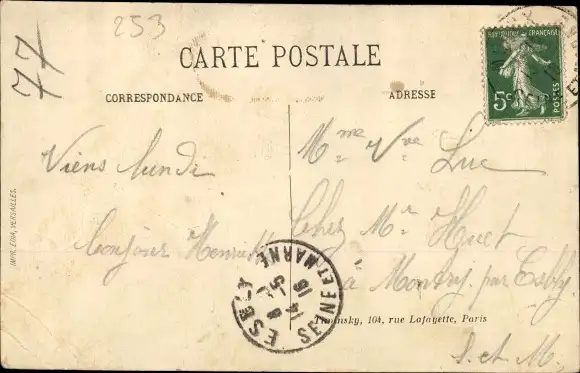 253
77
CARTE POSTALE
CORRESPONDANCE
ADRESSE
REPUBLIQUE FRANÇAISE
5c
POSTES
Viens lundi
Bonjour Henri
Mme Vve Luc
Chez Mr Huet
à Montry par Esbly
S. et M.
ESBLY
8 - 5
14 16
SEINE ET MARNE
IMPR. EDIA, VERSAILLES.
104, rue Lafayette, Paris